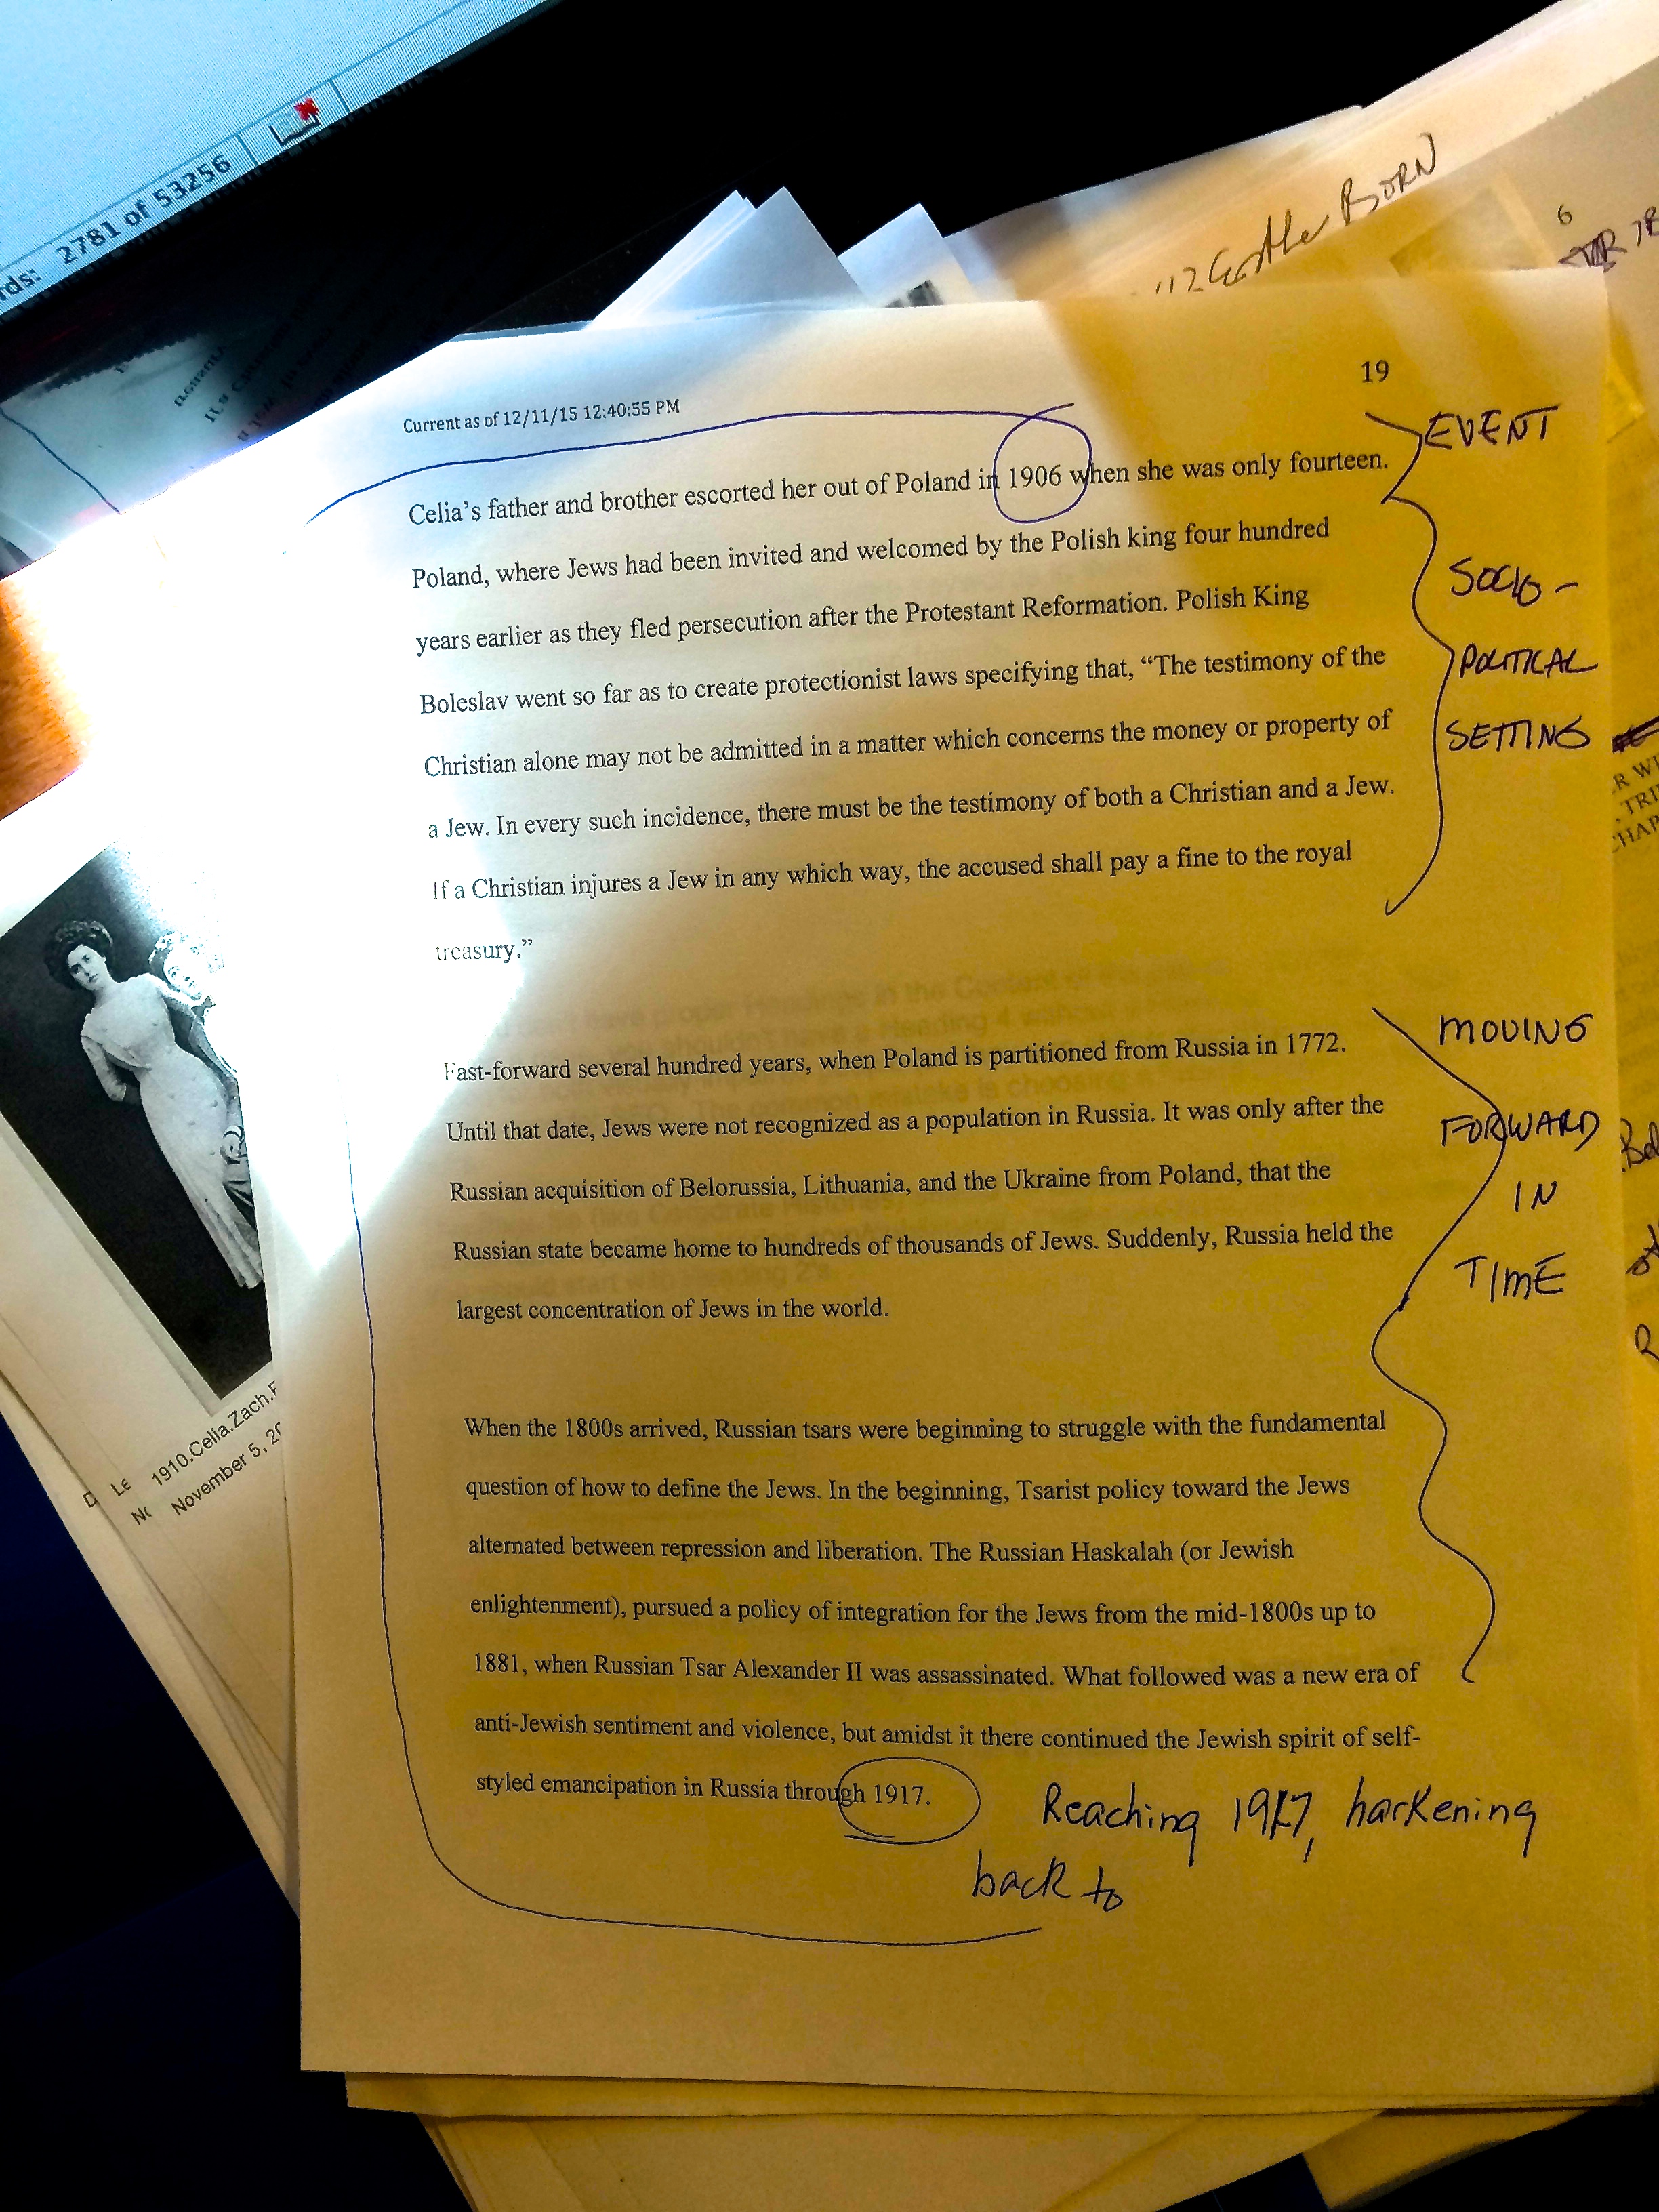 2781 of 53256
'12 Esther BORN
6
19
Current as of 12/11/15 12:40:55 PM
EVENT
Celia's father and brother escorted her out of Poland in 1906 when she was only fourteen.
Poland, where Jews had been invited and welcomed by the Polish king four hundred
years earlier as they fled persecution after the Protestant Reformation. Polish King
Boleslav went so far as to create protectionist laws specifying that, “The testimony of the
Christian alone may not be admitted in a matter which concerns the money or property of
a Jew. In every such incidence, there must be the testimony of both a Christian and a Jew.
If a Christian injures a Jew in any which way, the accused shall pay a fine to the royal
treasury.”
SOCIO-
POLITICAL
SETTING
Fast-forward several hundred years, when Poland is partitioned from Russia in 1772.
Until that date, Jews were not recognized as a population in Russia. It was only after the
Russian acquisition of Belorussia, Lithuania, and the Ukraine from Poland, that the
Russian state became home to hundreds of thousands of Jews. Suddenly, Russia held the
largest concentration of Jews in the world.
MOVING
FORWARD
IN
TIME
When the 1800s arrived, Russian tsars were beginning to struggle with the fundamental
question of how to define the Jews. In the beginning, Tsarist policy toward the Jews
alternated between repression and liberation. The Russian Haskalah (or Jewish
enlightenment), pursued a policy of integration for the Jews from the mid-1800s up to
1881, when Russian Tsar Alexander II was assassinated. What followed was a new era of
anti-Jewish sentiment and violence, but amidst it there continued the Jewish spirit of self-
styled emancipation in Russia through 1917.
Reaching 1917, harkening
back to
1910.Celia.Zach.F
November 5, 20